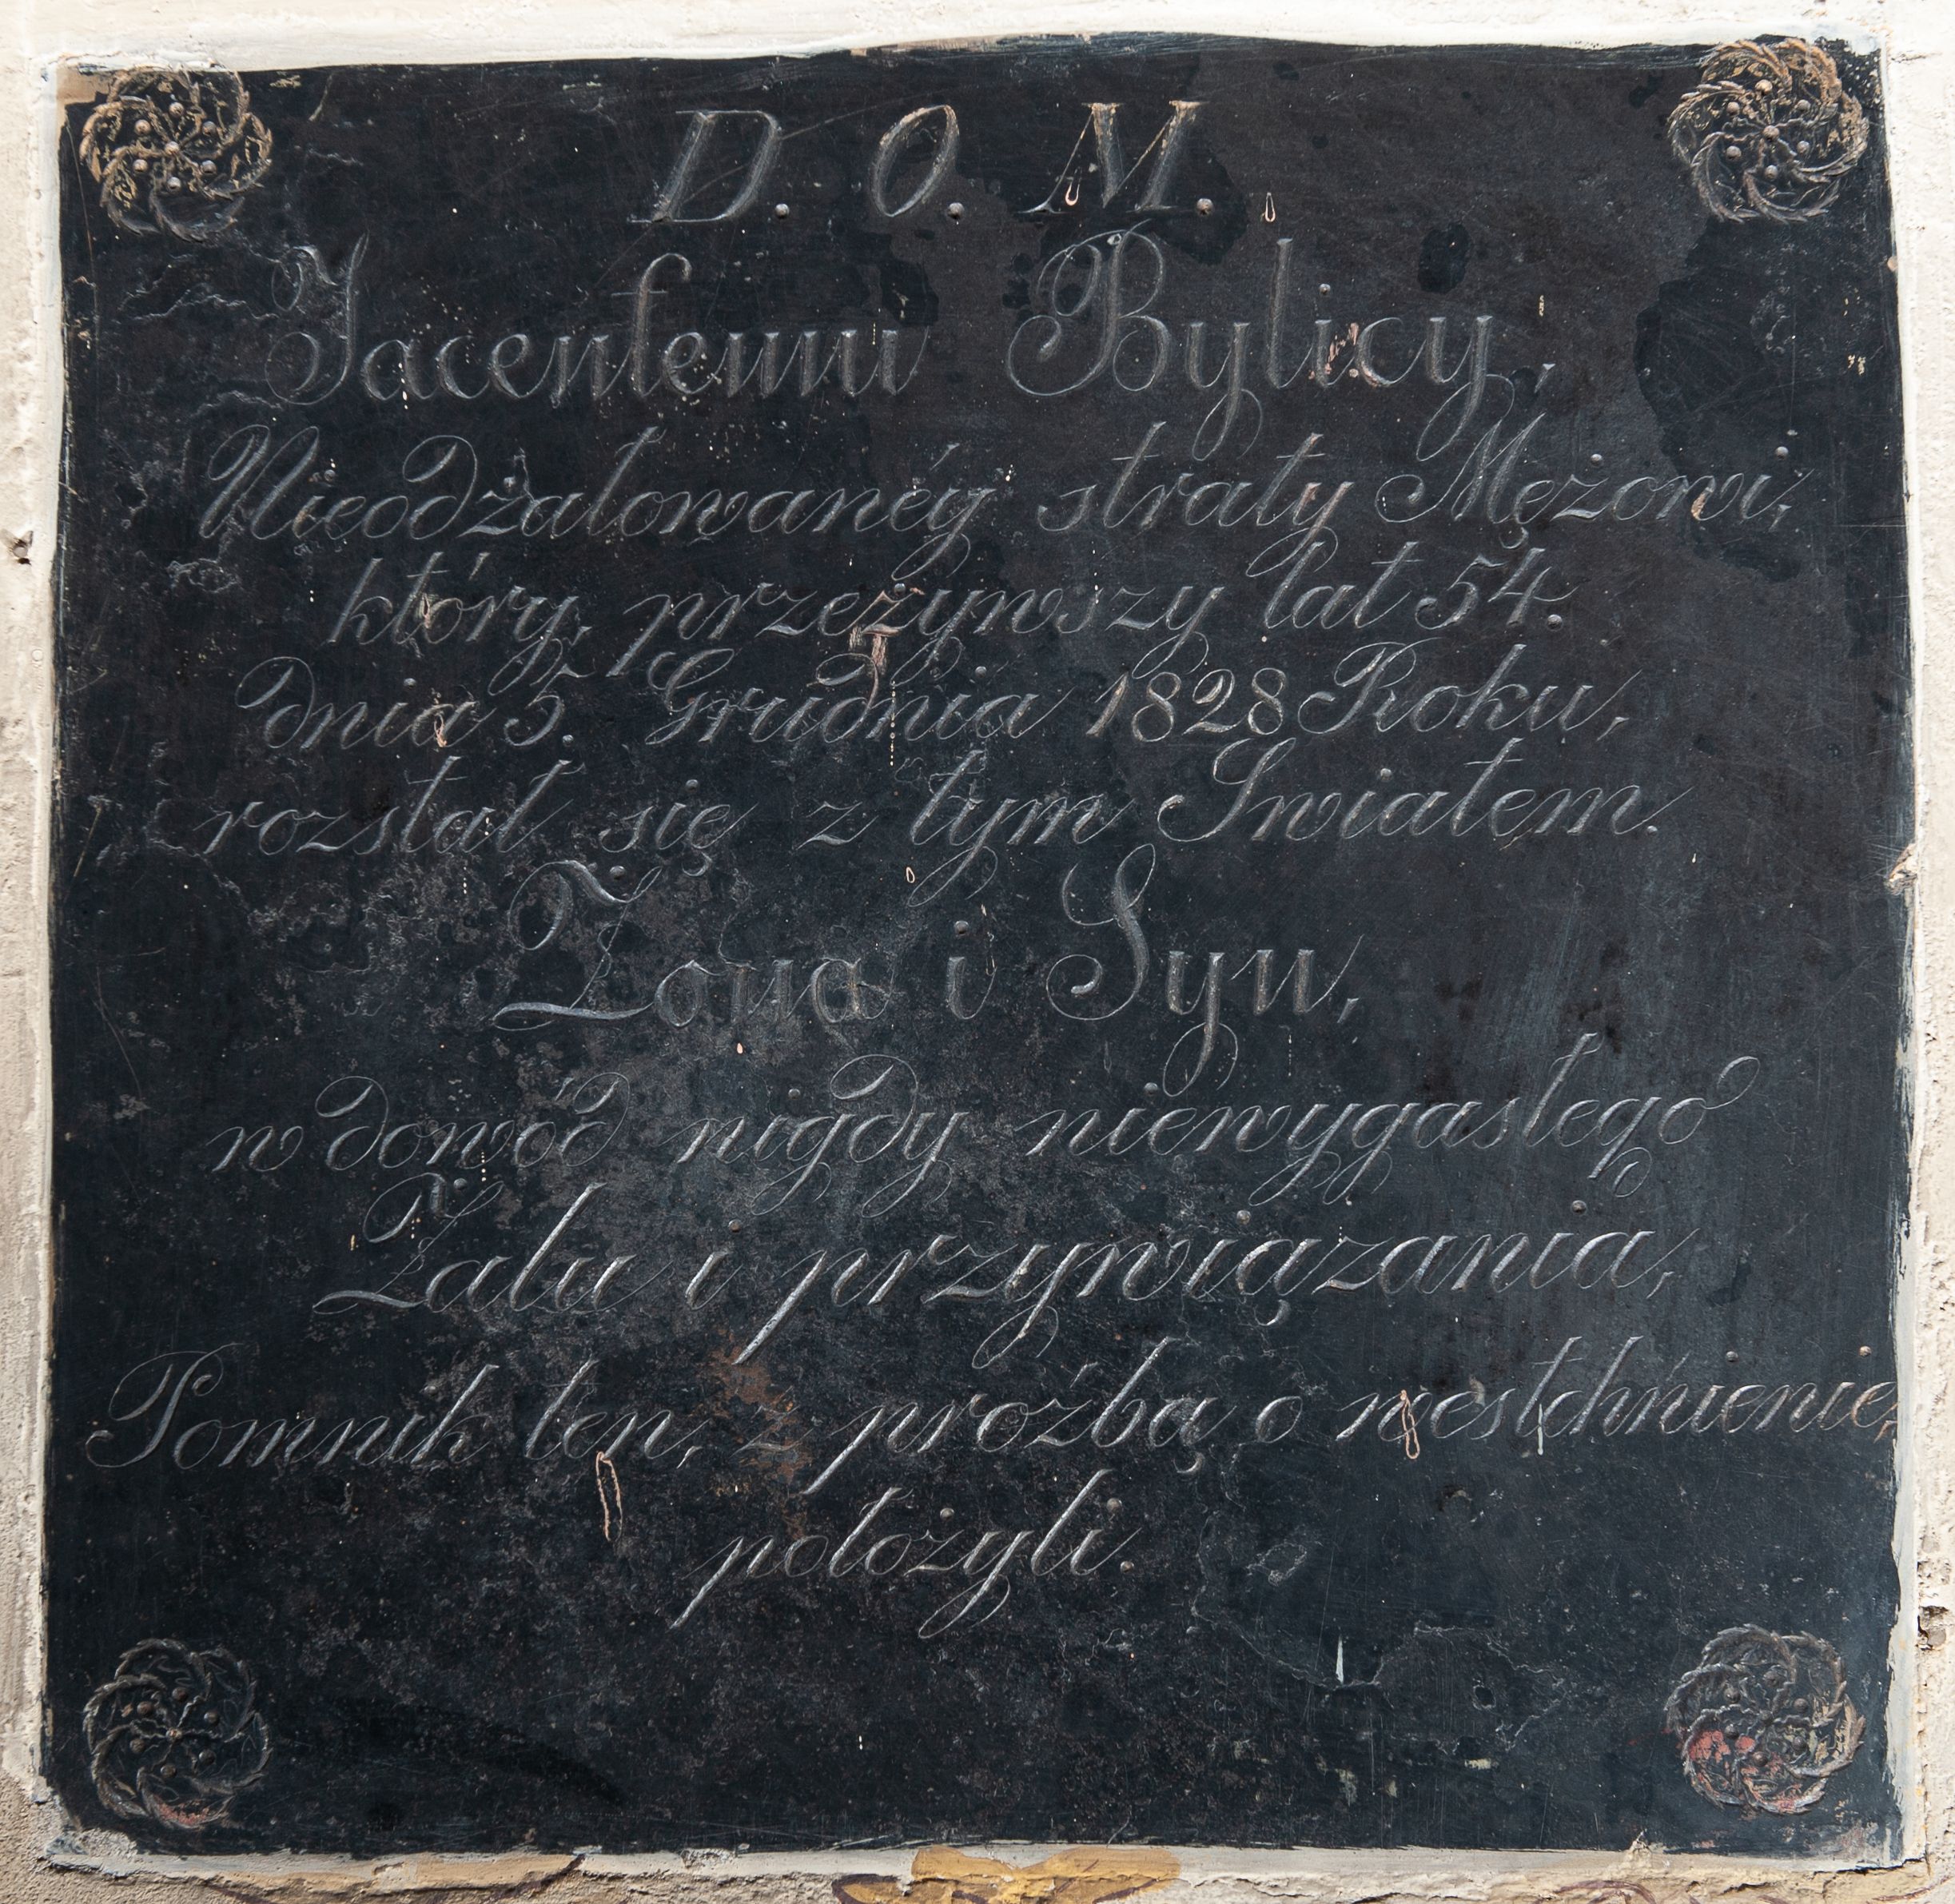 D. O. M.
Jacentemu Bylicy,
Nieodżałowanéy straty Mężowi,
który, przeżywszy lat 54.
dnia 5. Grudnia 1828 Roku,
rozstał się z tym Swiatem.
Żona i Syn,
w dowód nigdy niewygasłego
Żalu i przywiązania,
Pomnik ten, z proźbą o westchnienie,
położyli.